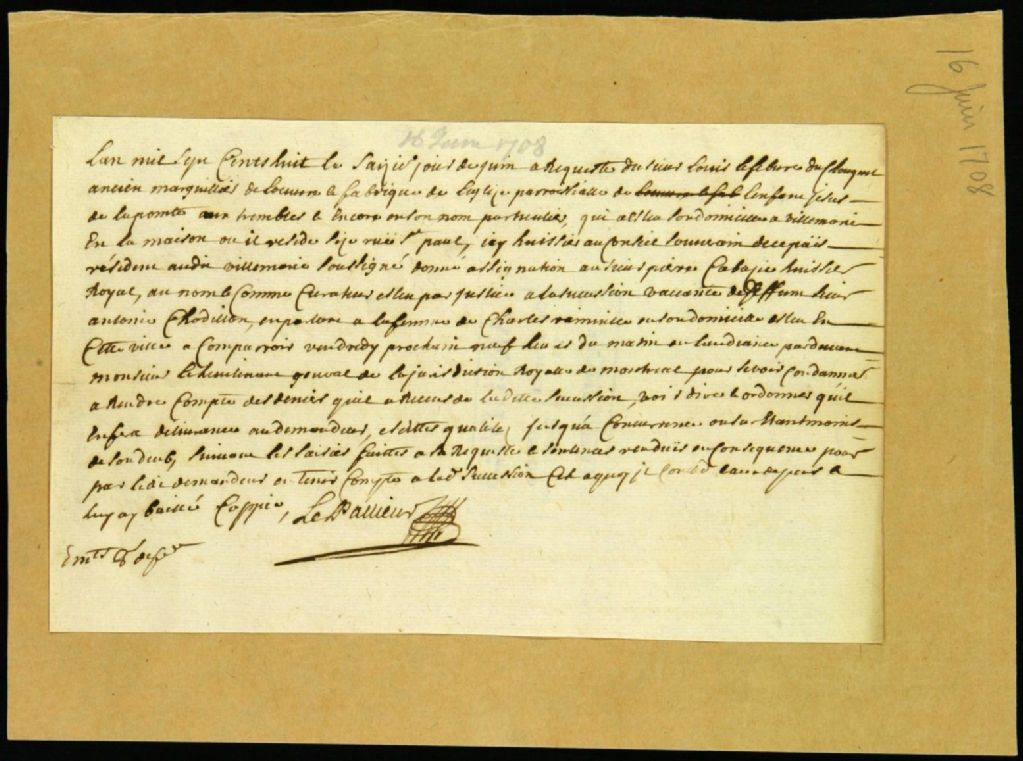 16 Juin 1708
16 Juin 1708
Lan mil sept Cents huit le Saizie jour de juin a Requeste du sieur Louis lefebvre duchouquet
ancien marguillier de Loeuvre & fabrique de Leglize parroissialle de Lenfant Jesus
de la pointe aux trembles & Encore en son nom particulier, qui a Esleu son domicille a villemarie
En la maison ou il reside size rue St paul, jay huissier au Conseil Souverain de ce païs
résident audit villemarie Soussigné donné assignation au sieur pierre Cabazie huissier
Royal, au nom & Comme Curateur esleu par justice a la succession vaccante de deffunt sieur
antoine Chodillon, en parlant a la femme de Charles en son domicille esleu En
Cette ville a Comparroir vendredy prochain neuf heures du matin en Laudiance pardevant
monsieur Le lieutenant general de la jurisdiction Royalle de montreal pour se voir Condamner
a Rendre Compte des deniers quil a Receus de la dette Succession, voir dire & ordonner quil
En fera delivrance au demandeur, esdittes qualitez jusqu'a Concurrance ou
de son deub, suivant les saisies faittes a sa Requeste & sentences rendües en Consequence pour
par le dt demandeur en tenir Compte a lad. Succession
luy ay baillé Coppie, Le Pallieur